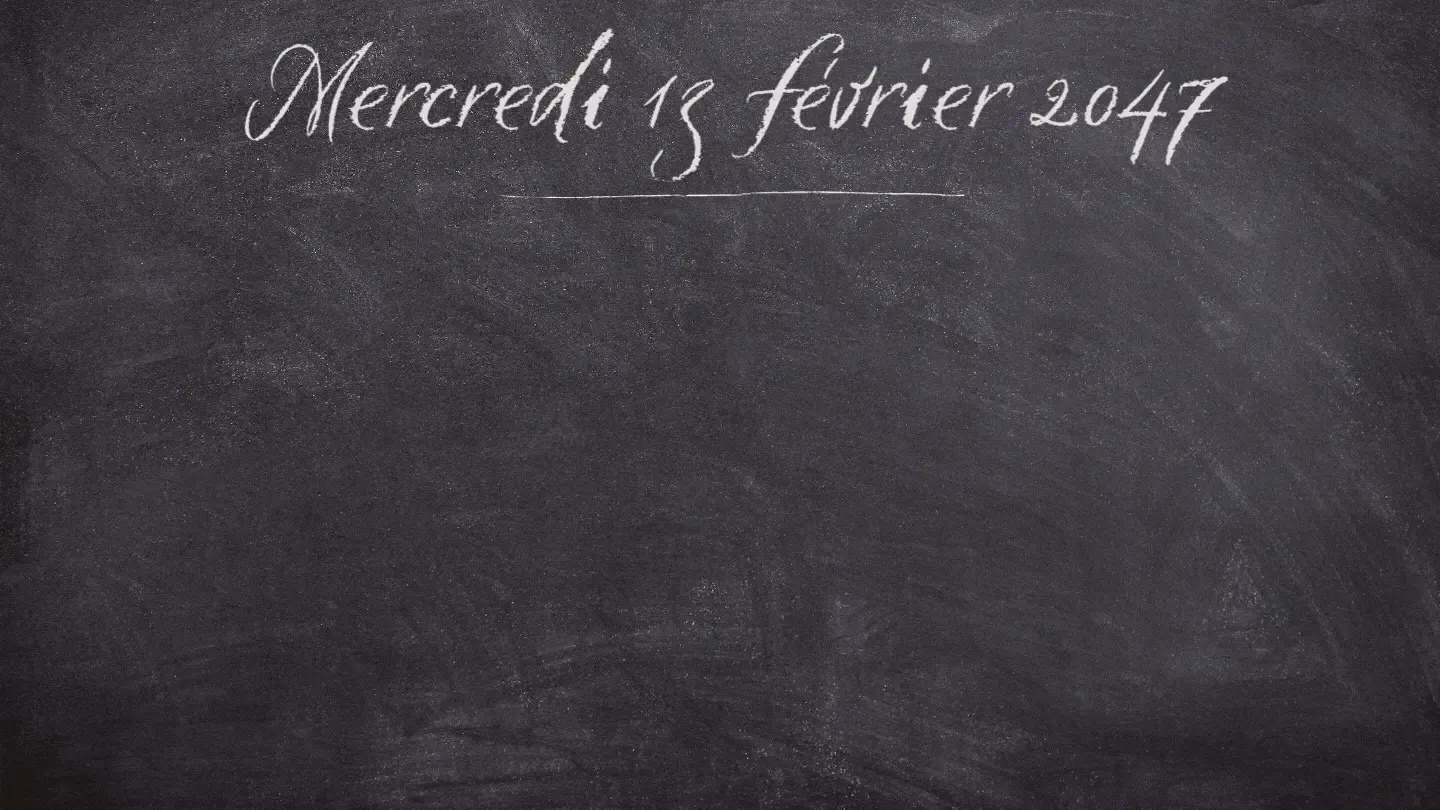 Mercredi 13 février 2047